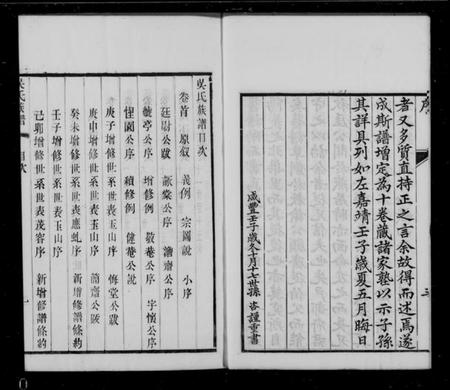 者又多質直持正之言余故得而述焉遂
成斯譜增定為十卷藏諸家塾以示子孫
其詳具列如左嘉靖壬子歲夏五月晦日
咸豐壬子歲冬十月十七世孫 重書
吳氏族譜目次
卷首 原叙 義例 宗圖說 小序
廷尉公跋 公序 澹齋公序
亭公序 增修例 敬菴公序 字懷公序
公序 續修例 健菴公說
庚子增修世系世表玉山序 悔堂公跋
庚申增修世系世表玉山序 簡齋公跋
癸未增修世系世表應虬序 新增修譜條約
壬子增修世系世表玉山序
己卯增修世系世表茂容序 新增修譜條約
吳氏族譜 目次 一